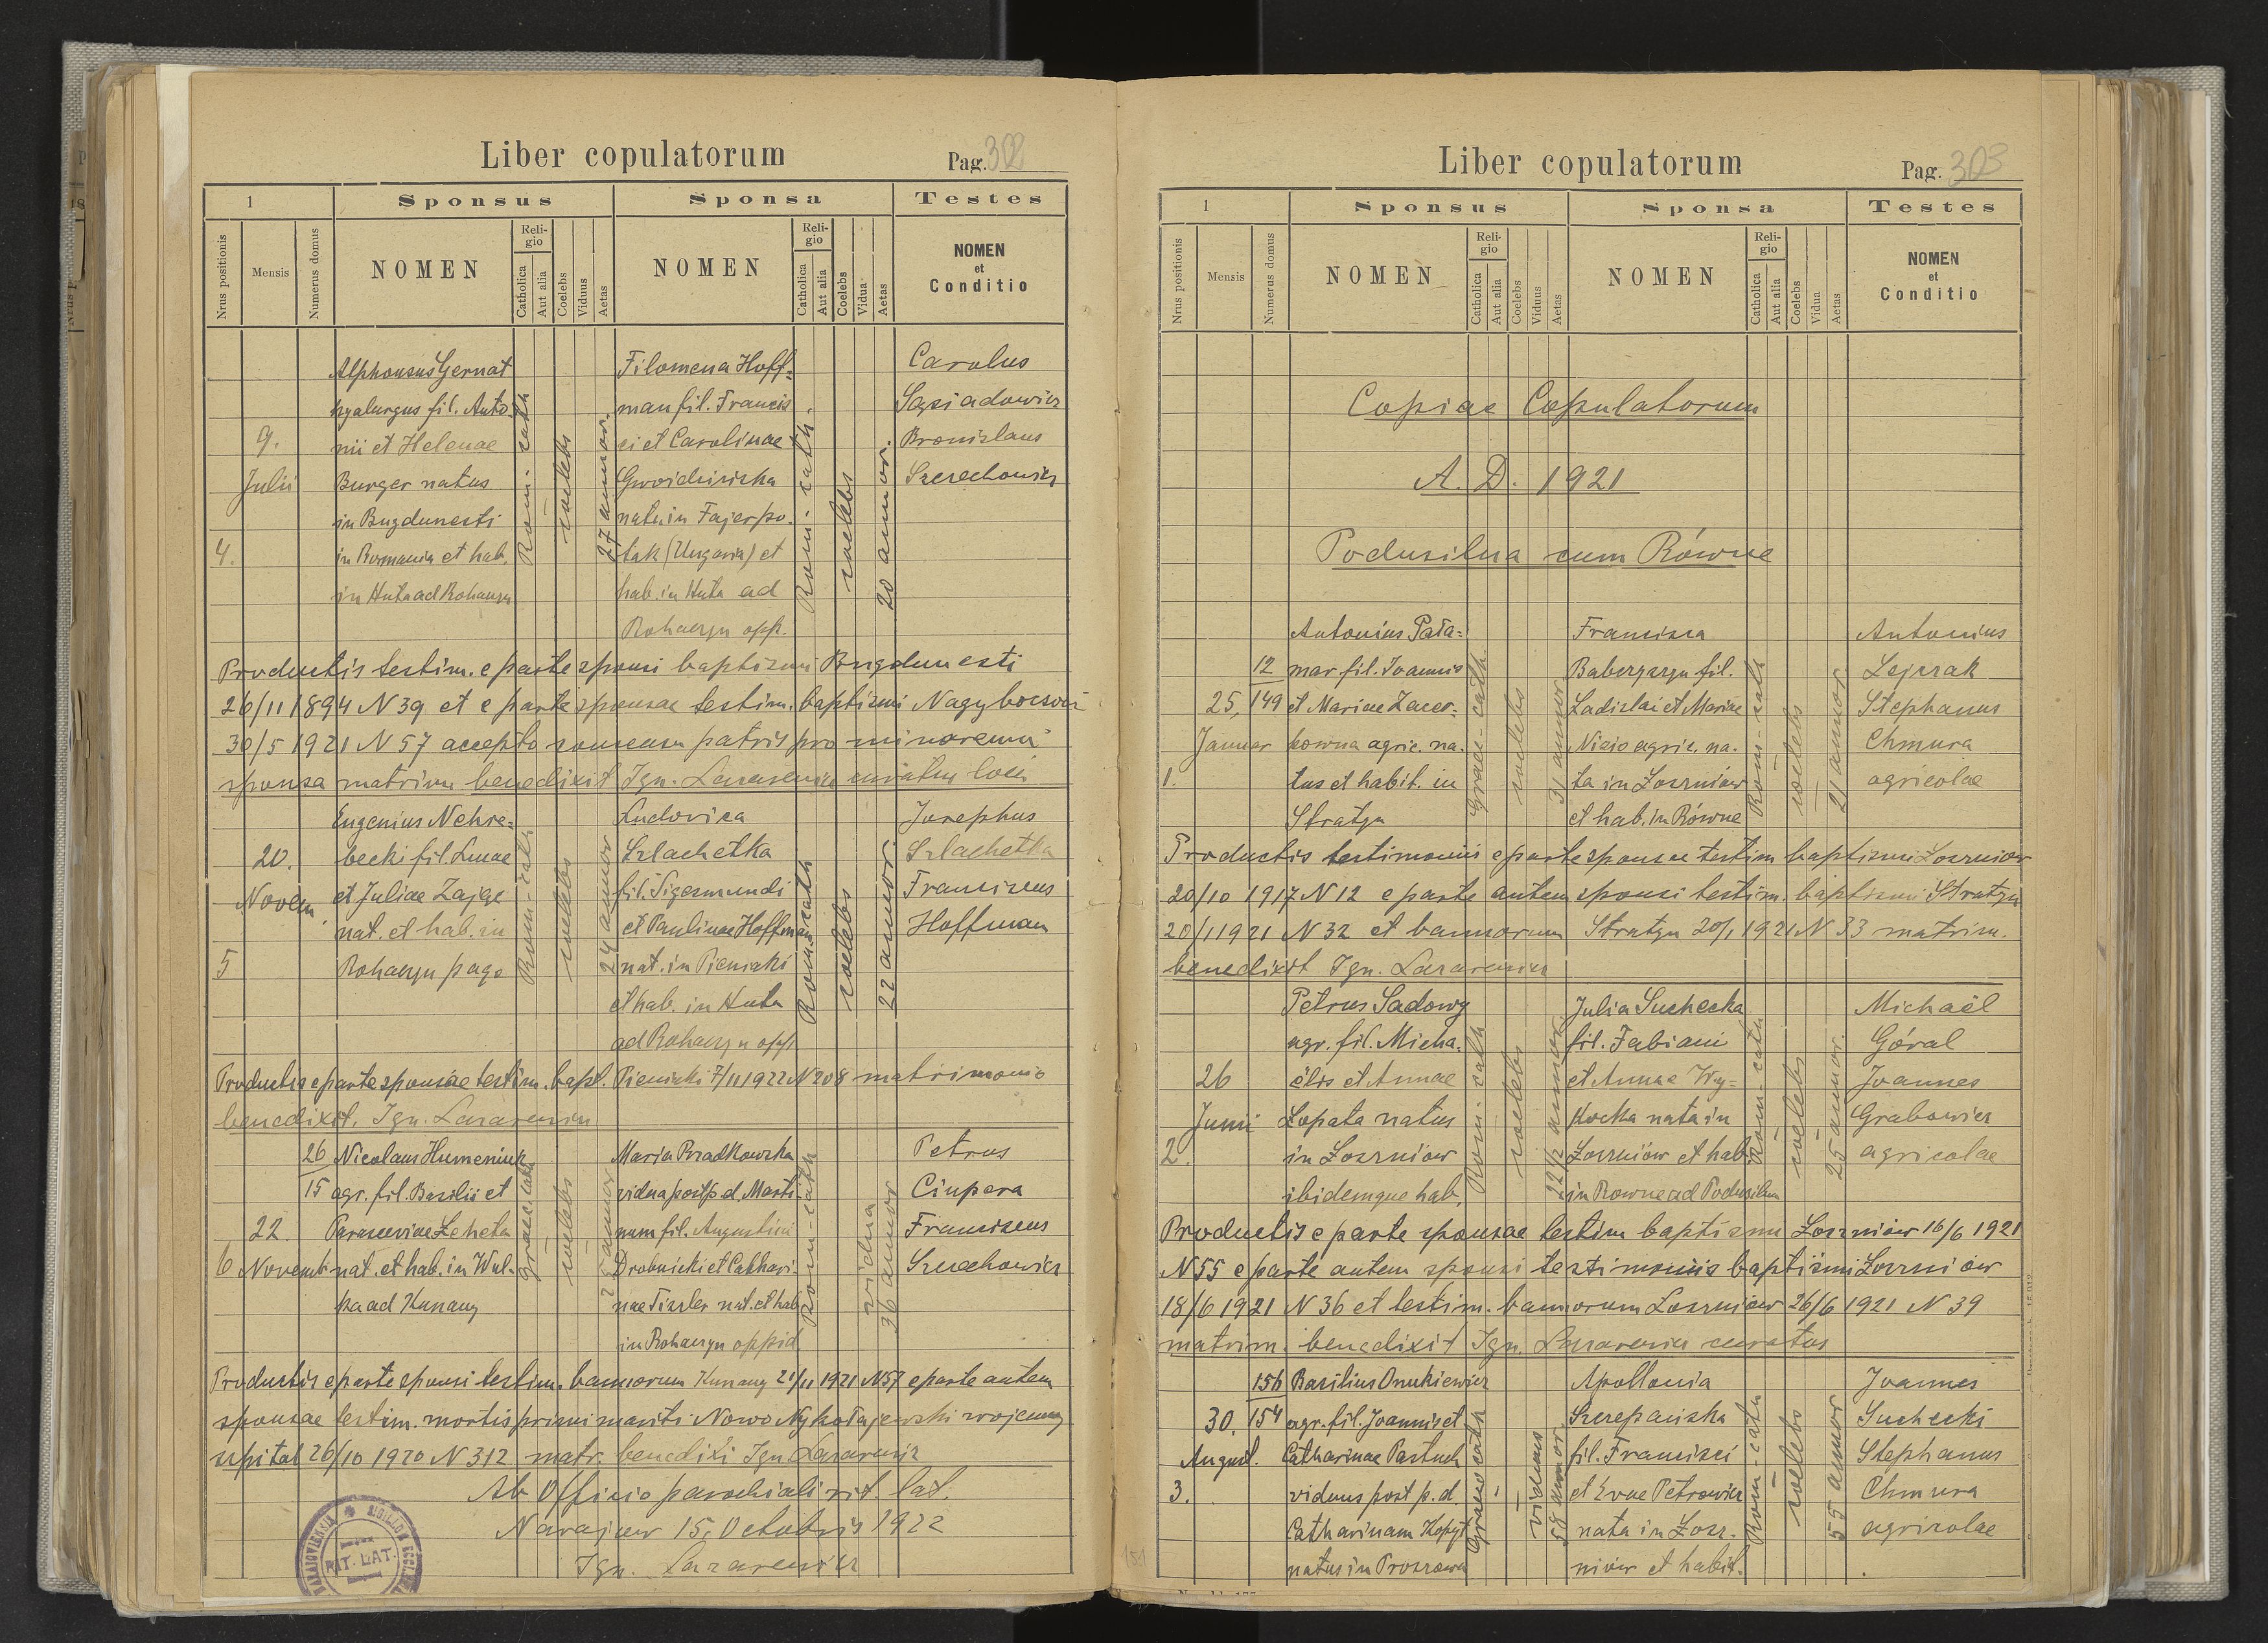 Liber copulatorum
Pag. 302
1
Sponsus
Sponsa
Testes
Nrus positionis
Mensis
Numerus domus
NOMEN
Religio
Catholica
Aut alia
Coelebs
Viduus
Aetas
NOMEN
Religio
Catholica
Aut alia
Coelebs
Vidua
Aetas
NOMEN
et
Conditio
4.
9.
Julii
Alphonsus Gernat
hyalurgus fil. Anto-
nii et Helenae
Burger natus
in Bugdunesti
in Romania et hab.
in Huta ad Rohaczyn
Rom-cath
coelebs
27 annor.
Filomena Hoff=
man fil. Francis
ci et Carolinae
nata in Fajerpo-
tak (Ungaria) et
hab. in Huta ad
Rohaczyn opp.
Rom-cath.
coelebs
20 annor.
Carolus
Sąsiadowicz
Bronislaus
Szczechowicz
Productis testim. e parte sponsi baptismi Bugdunesti
26/11 1894 N 39 et e parte sponsae testim. baptismi Nagybocskó
30/5 1921 N 57 accepto consensu patris pro minorenni
sponsa matrim. benedixit Ign. Lazarewicz curatus loci
5
20.
Novem
Eugenius Nehre=
becki fil. Lucae
et Juliae Zając
nat. et hab. in
Rohaczyn pago
Rom-cath
coelebs
24 annor
Ludovica
Szlachetka
fil. Sigesmundi
et Paulinae Hoffman
nat. in Pieniaki
et hab. in Huta
ad Rohaczyn opp.
Rom-cath
coelebs
22 annor.
Josephus
Szlachetka
Franciscus
Hoffman
Productis e parte sponsae testim. bapt. Pieniaki 7/11 1922 N 208 matrimonio
benedixit. Ign. Lazarewicz
6
22.
Novemb
26
15
Nicolaus Humeniuk
agr. fil. Basilii et
Parasceviae Leheta
nat. et hab. in Wul-
ka ad Kunany
graec. cath
coelebs
Maria Przadkowska
vidua post p. d. Marti-
num fil. Augustini
Drobnicki et Cathari-
nae Tissler nat. et hab
in Rohaczyn oppid
Rom-cath
vidua
36 annor
Petrus
Ciupera
Franciscus
Szczechowicz
Productis e parte sponsi testim. bannorum Kunany 21/11 1921 N 57 e parte autem
sponsae testim. mortis primi mariti Nowo Mykołajewski wojenny
szpital 26/10 1920 N 312 matr. benedixi Ign Lazarewicz
Ab Officio parochiali rit. lat.
Narajow 15. Octobris 1922
Ign. Lazarewicz
RIT. LAT.
Liber copulatorum
Pag. 303
1
Sponsus
Sponsa
Testes
Nrus positionis
Mensis
Numerus domus
NOMEN
Religio
Catholica
Aut alia
Coelebs
Viduus
Aetas
NOMEN
Religio
Catholica
Aut alia
Coelebs
Vidua
Aetas
NOMEN
et
Conditio
Copiae Copulatorum
A. D. 1921
Podusilna cum Równe
1.
25,
Januar
12
149
Antonius Pała=
mar fil. Joannis
et Mariae Zacer=
kowna agric. na-
tus et habit. in
Stratyn
Graec-cath.
coelebs
31 annor
Francisca
Babergryn fil.
Ladislai et Mariae
Nizio agric. na-
ta in Łozrniów
et hab. in Równe
Rom-cath
coelebs
21 annor.
Antonius
Lejzrak
Stephanus
Chmura
agricolae
Productis testimonii e parte sponsae testim baptismi Łozrniów
20/10 1917 N 12 e parte autem sponsi testim. baptismi Stratyn
20/1 1921 N 32 et bannorum Stratyn 20/1 1921 N 33 matrim.
benedixit Ign. Lazarewicz
2.
26
Junii
Petrus Sadowy
agr. fil. Micha=
ëlis et Annae
Łopata natus
in Łozrniów
ibidemque hab.
Rom-cath
coelebs
22 1/2 annor
Julia Suchecka
fil. Fabiani
et Annae Wy=
socka nata in
Łozrniów et hab.
in Rowne ad Podusilna
Rom-cath
coelebs
25 annor.
Michaël
Góral
Joannes
Grabowicz
agricolae
Productis e parte sponsae testim baptismi Łozrniów 16/6 1921
N 55 e parte autem sponsi testimoniis baptismi Łozrniów
18/6 1921 N 36 et testim. bannorum Łozrniów 26/6 1921 N 39
matrim. benedixit Ign. Lazarewicz curatus
3.
30.
August.
156
154
Basilius Onukiewicz
agr. fil. Joannis et
Catharinae Pastuch
viduus post p. d.
Catharinam Kopyt
natus in Prozrowa
Graeco cath
viduus
58 annor.
Apollonia
Szczepańska
fil. Francisci
et Evae Petrowicz
nata in Łozr-
niów et habit.
Rom-cath
coelebs
55 annor
Joannes
Suchecki
Stephanus
Chmura
agricolae
151